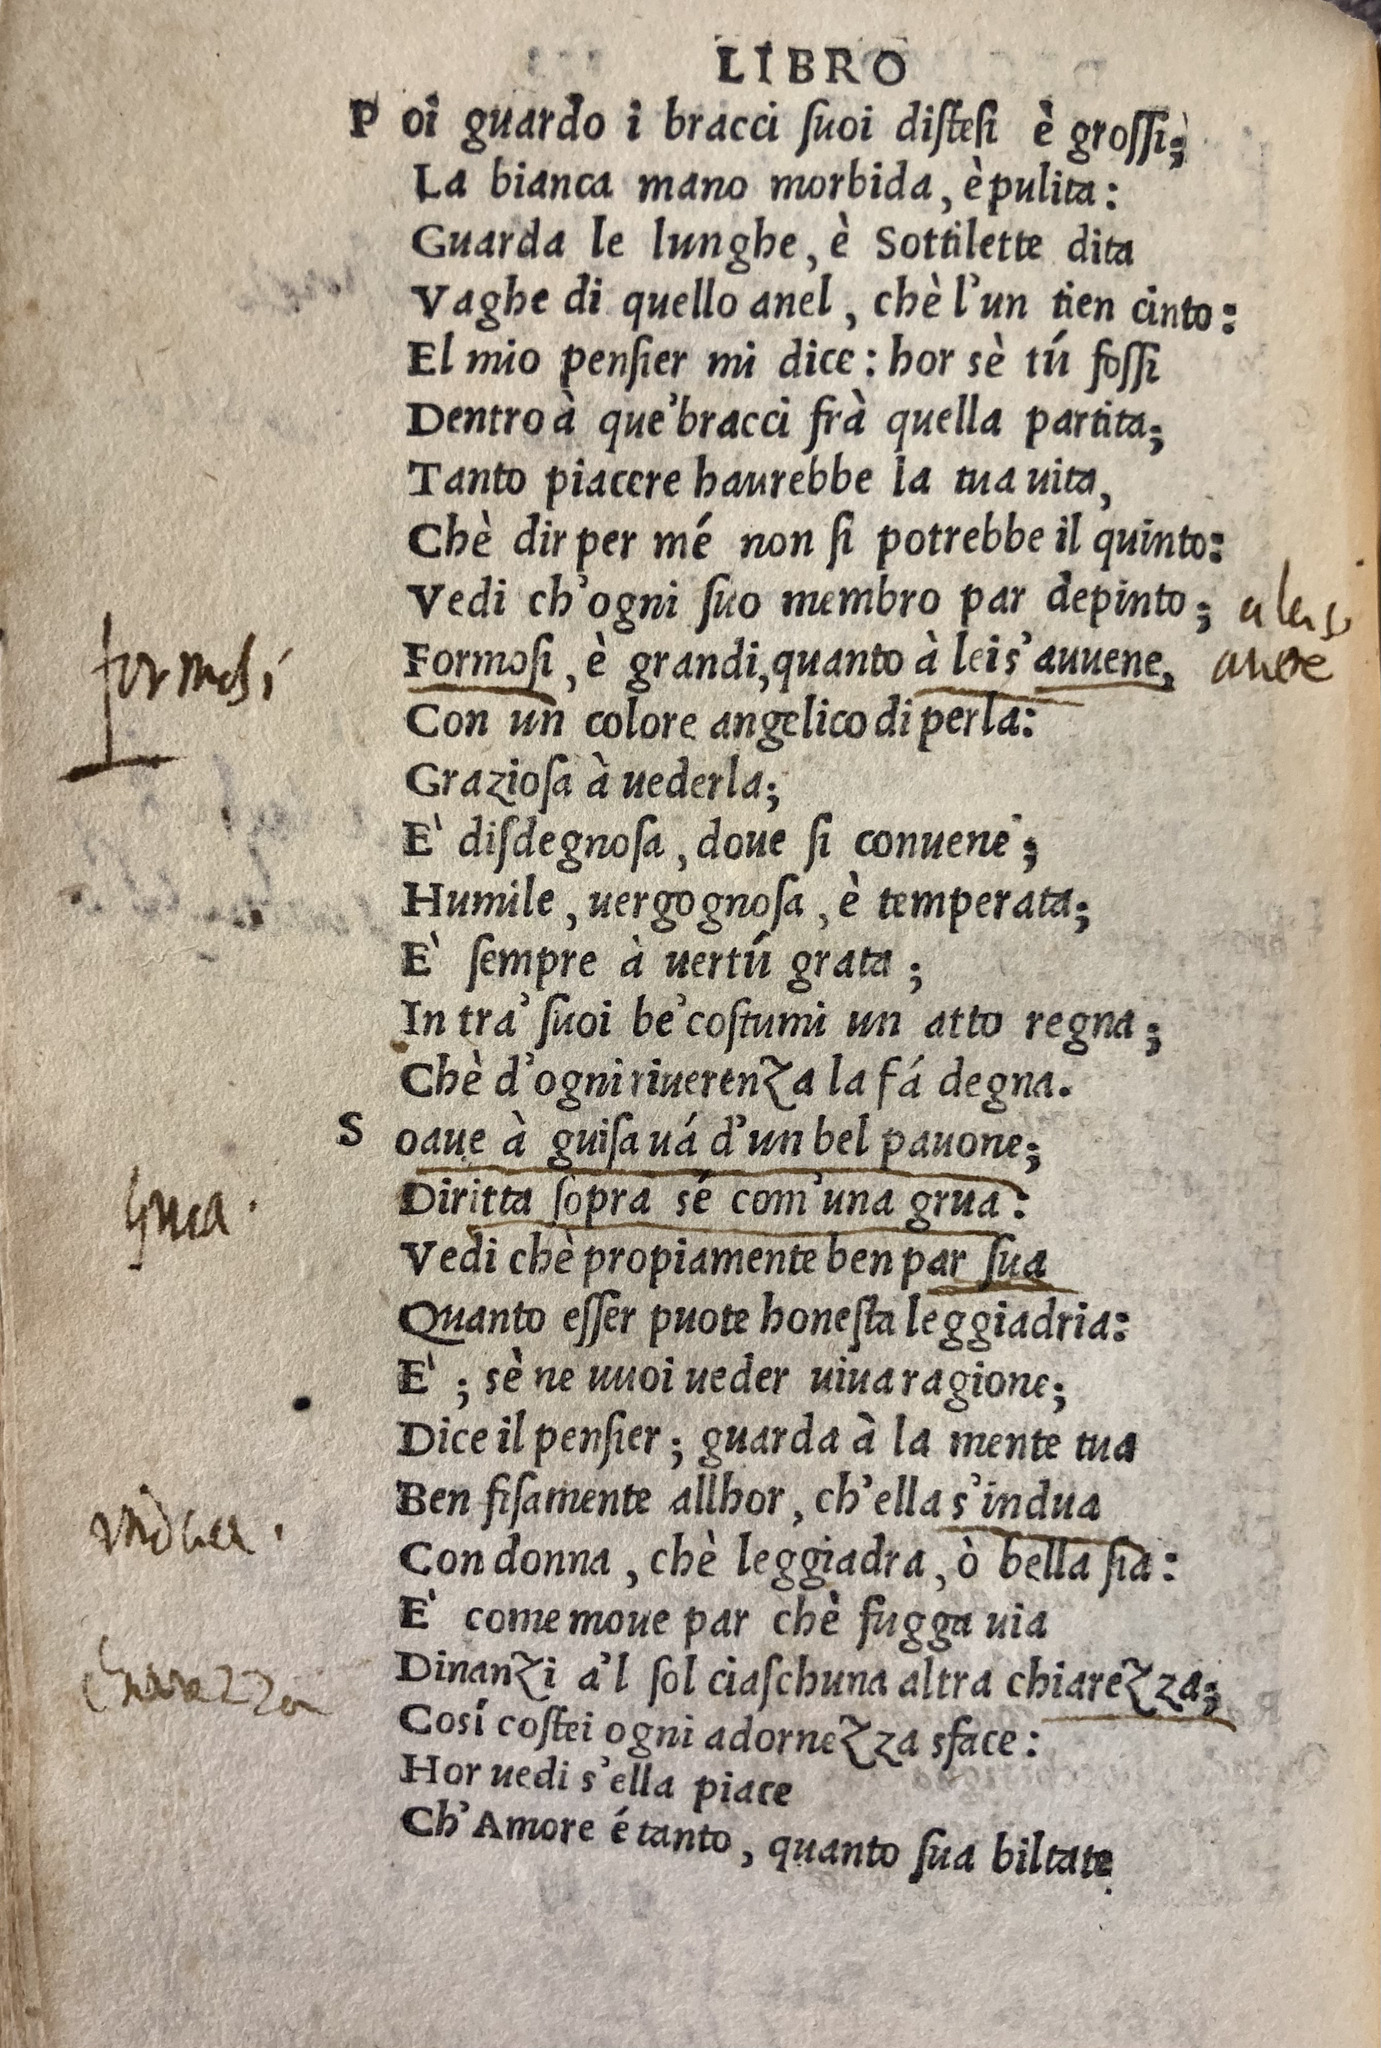 LIBRO
Poi guardo i bracci ſuoi diſteſi è groſſi;
La bianca mano morbida, è pulita:
Guarda le lunghe, è Sottilette dita
Vaghe di quello anel, chè l'un tien cinto:
El mio penſier mi dice: hor sè tú foſſi
Dentro à que' bracci frà quella partita;
Tanto piacere haurebbe la tua uita,
Chè dir per mé non ſi potrebbe il quinto:
Vedi ch'ogni ſuo membro par depinto;
formosi
Formoſi, è grandi, quanto à lei s'auuene,
Con un colore angelico di perla:
Grazioſa à uederla;
E' diſdegnoſa, doue ſi conuene;
Humile, uergognoſa, è temperata;
E' ſempre à uertú grata;
In tra' ſuoi be' coſtumi un atto regna;
Chè d'ogni riuerenza la fá degna.
Soaue à guiſa uá d'un bel pauone;
grua.
Diritta ſopra sé com'una grua:
Vedi chè propiamente ben par ſua
Quanto eſſer puote honeſta leggiadria:
E'; sè ne uuoi ueder uiua ragione;
Dice il penſier; guarda à la mente tua
Ben fiſamente allhor, ch'ella s'indua
indua.
Con donna, chè leggiadra, ò bella ſia:
E' come moue par chè fugga uia
Dinanzi a'l ſol ciaſchuna altra chiarezza;
chiarezza
Cosí coſtei ogni adornezza sface:
Hor uedi s'ella piace
Ch'Amore é tanto, quanto ſua biltate